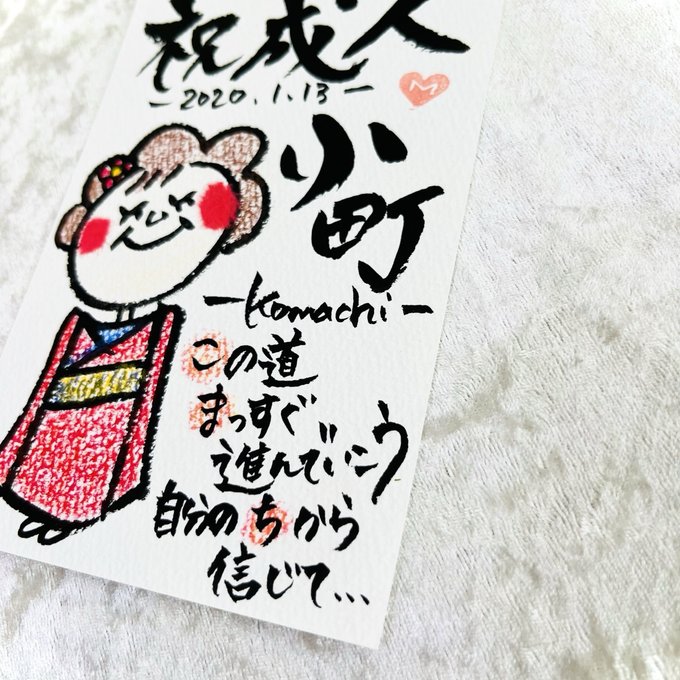 祝成人
-2020.1.13-
M
小町
-Komachi-
この道
まっすぐ
進んでいこう
自分のちから
信じて...